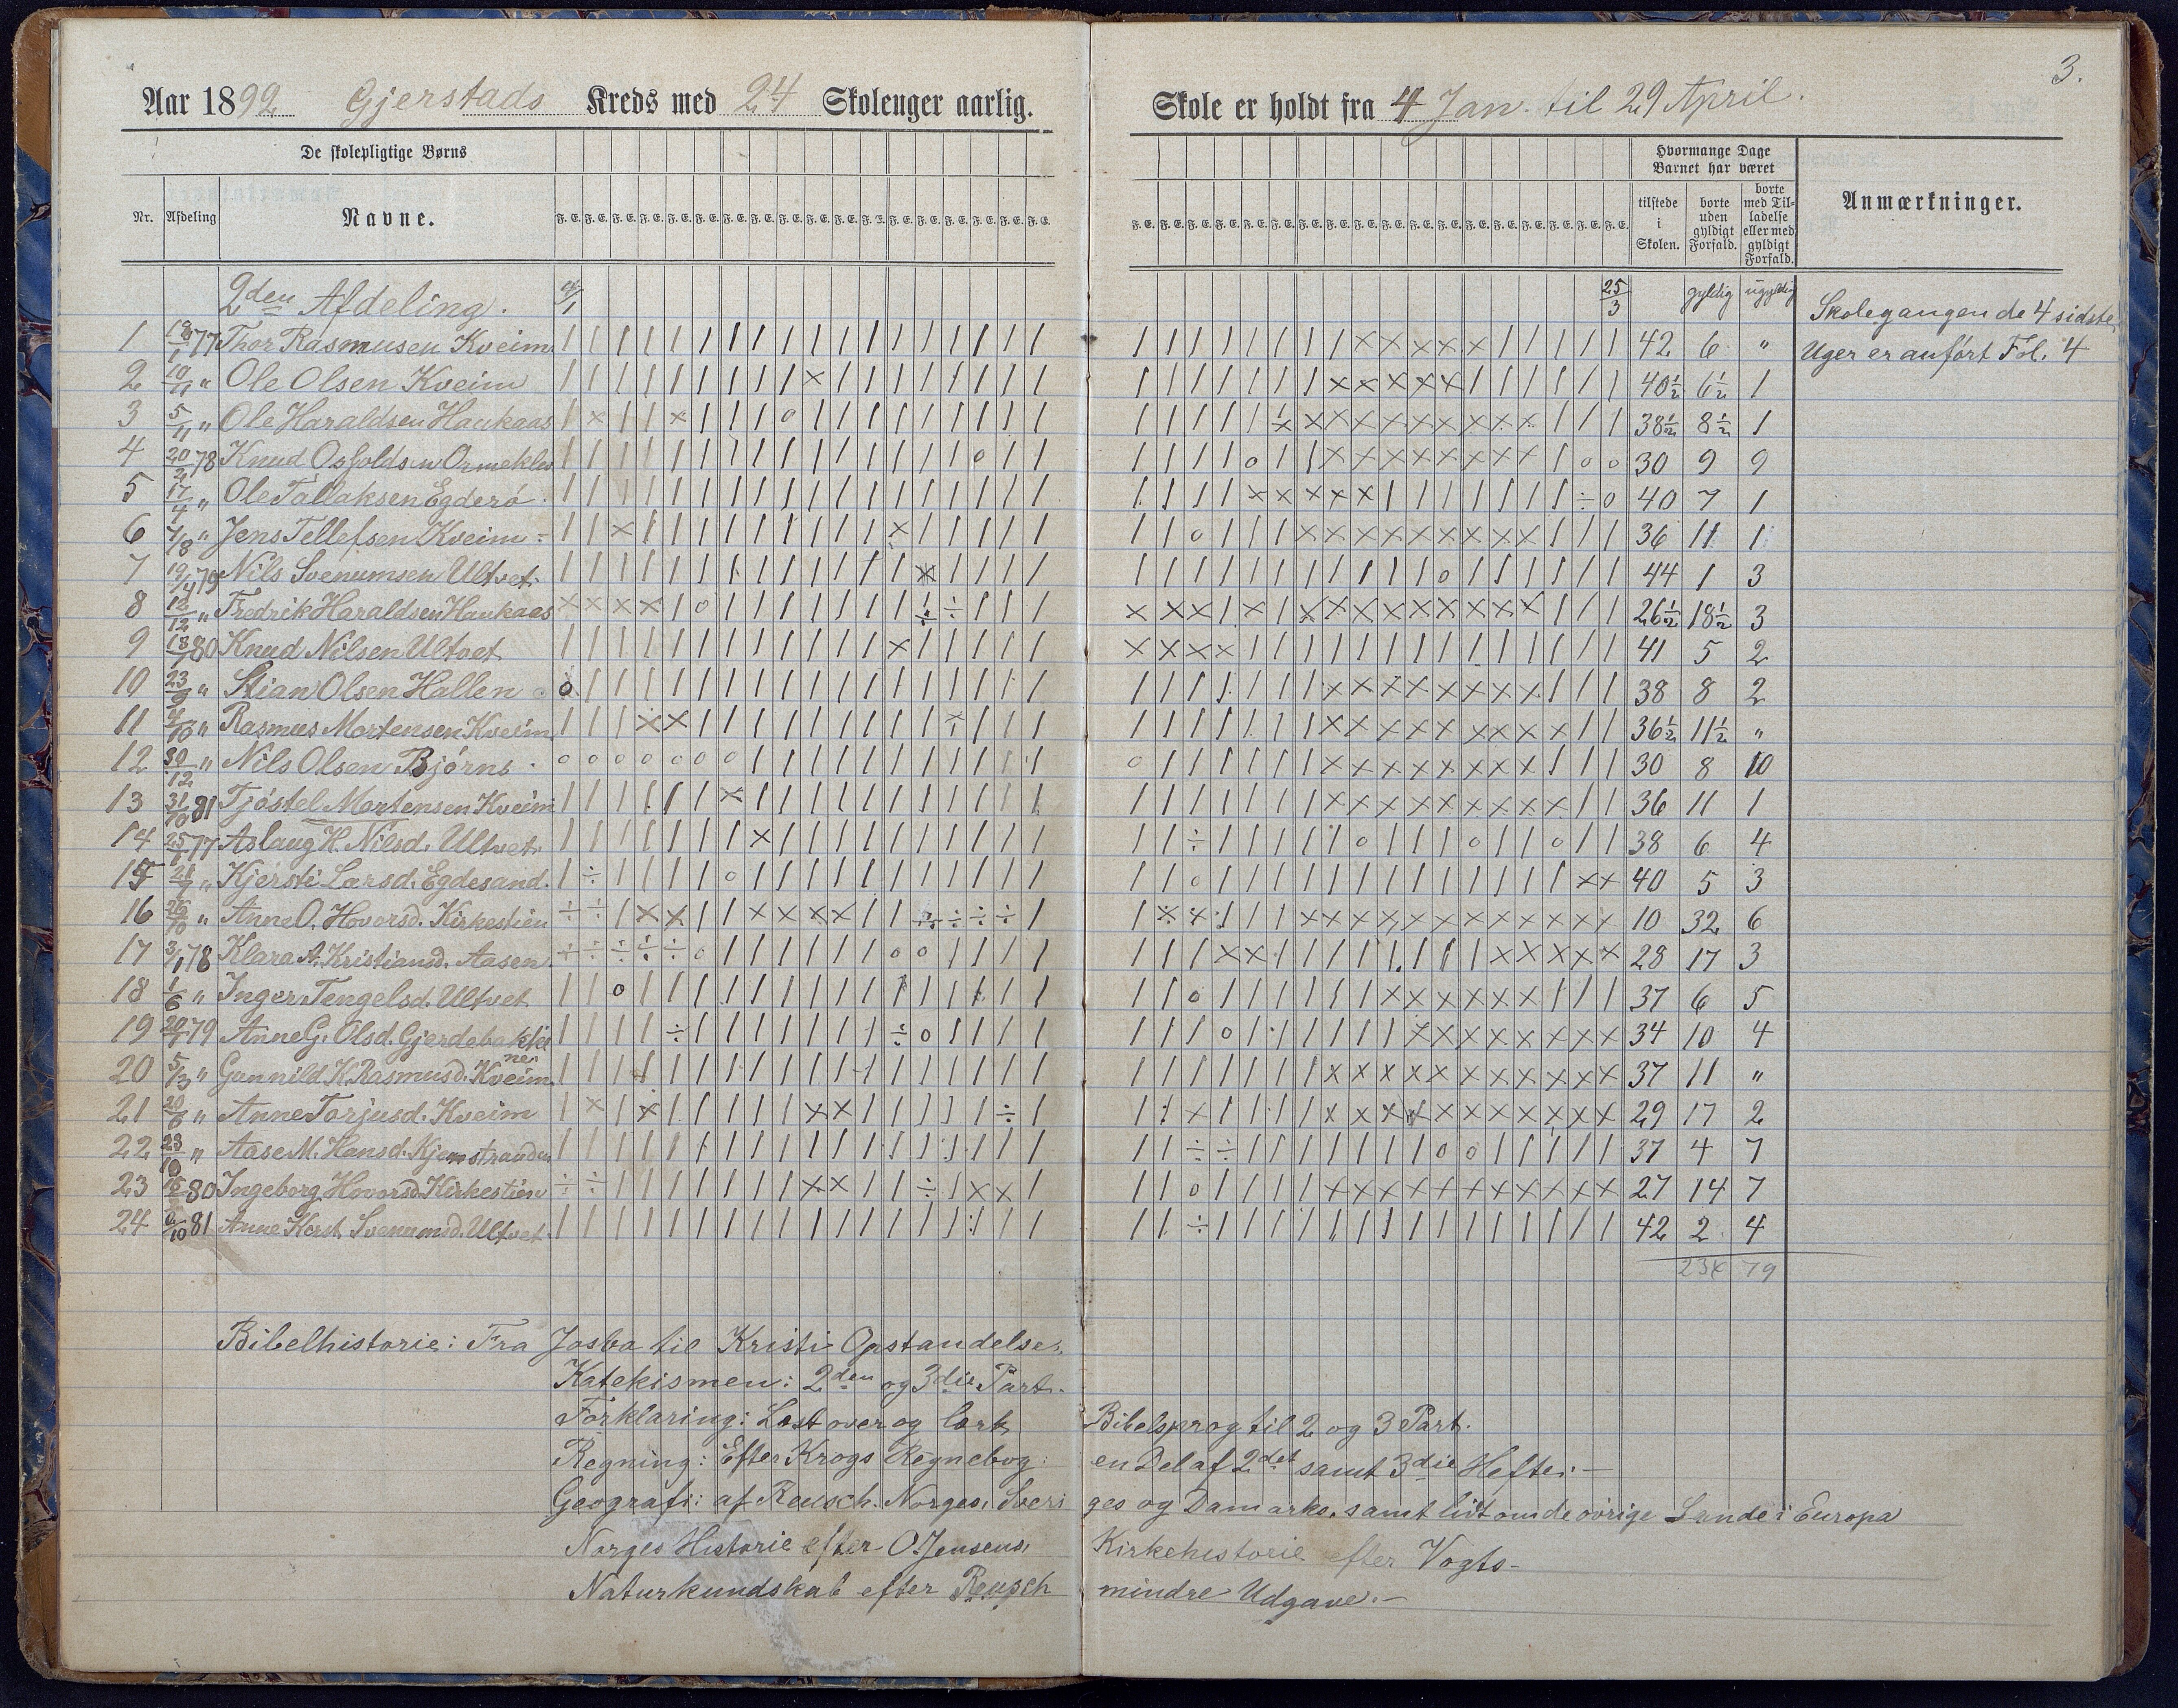 3.
Aar 1892 Gjerstads Kreds med 24 Skolenger aarlig. Skole er holdt fra 4 Jan. til 29 April.
De skolepligtige Børns
Hvormange Dage Barnet har været
Nr. Afdeling Navne. F. E. tilstede i Skolen. borte uden gyldigt Forfald. borte med Tilladelse eller med gyldigt Forfald. Anmærkninger.
2den Afdeling. 25/3 gyldig ugyldig
Skolegangen de 4 sidste
Uger er anført Fol. 4
1 77 Thor Rasmusen Kveim 42 6 "
2 " Ole Olsen Kveim 40½ 6½ 1
3 5/11 " Ole Haraldsen Haukaas 38½ 8½ 1
4 20/2 78 Knud Ormeklev 30 9 9
5 17/4 " Ole Tallaksen Egderø 40 7 1
6 " Jens Tellefsen Kveim 36 11 1
7 79 Nils Svenumsen Ultvet 44 1 3
8 12/12 " Fredrik Haraldsen Haukaas 26½ 18½ 3
9 80 Knud Nilsen Ultvet 41 5 2
10 23/9 " Stian Olsen Hallen 38 8 2
11 " Rasmus Mortensen Kveim 36½ 11½ "
12 30/12 " Nils Olsen Bjørns 30 8 10
13 31/10 81 Tjøstel Mortensen Kveim 36 11 1
14 25/1 77 Aslaug K. Nilsd. Ultvet 38 6 4
15 " Kjersti Larsd. Egdesand. 40 5 3
16 " Anne O. Hovorsd. Kirkestien 10 32 6
17 3/1 78 Klara A. Kristiansd. Aasen 28 17 3
18 1/6 " Inger Tengelsd. Ultvet 37 6 5
19 79 Anne G. Olsd. Gjerdebakkene 34 10 4
20 5/3 " Gunnild K. Rasmusd. Kveim 37 11 "
21 " Anne Torjusd. Kveim 29 17 2
22 23/10 " Aase M. Hansd. Kjernstranden 37 4 7
23 80 Ingeborg Hovorsd. Kirkestien 27 14 7
24 81 Anne Kerst. Svenumsd. Ultvet 42 2 4
79
Bibelhistorie: Fra Josva til Kristi Opstandelse.
Katekismen: 2den og 3die Part.
Forklaring: Læst over og lært Bibelsprog til 2 og 3 Part.
Regning: Efter Krogs Regnebog en Del af 2det samt 3die Hefte.
Geografi: af Reusch. Norges, Sveriges og Danmarks, samt lidt om de øvrige Lande i Europa
Norges Historie efter O. Jensens, Kirkehistorie efter Vogts
Naturkundskab efter Reusch mindre Udgave.